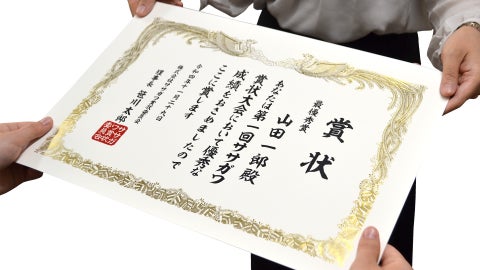 賞状
最優秀賞
山田一郎殿
あなたは第一回ササガワ
賞状大会において優秀な
成績をおさめましたので
ここに賞します
令和四年十一月二十九日
理事長 笹川太郎